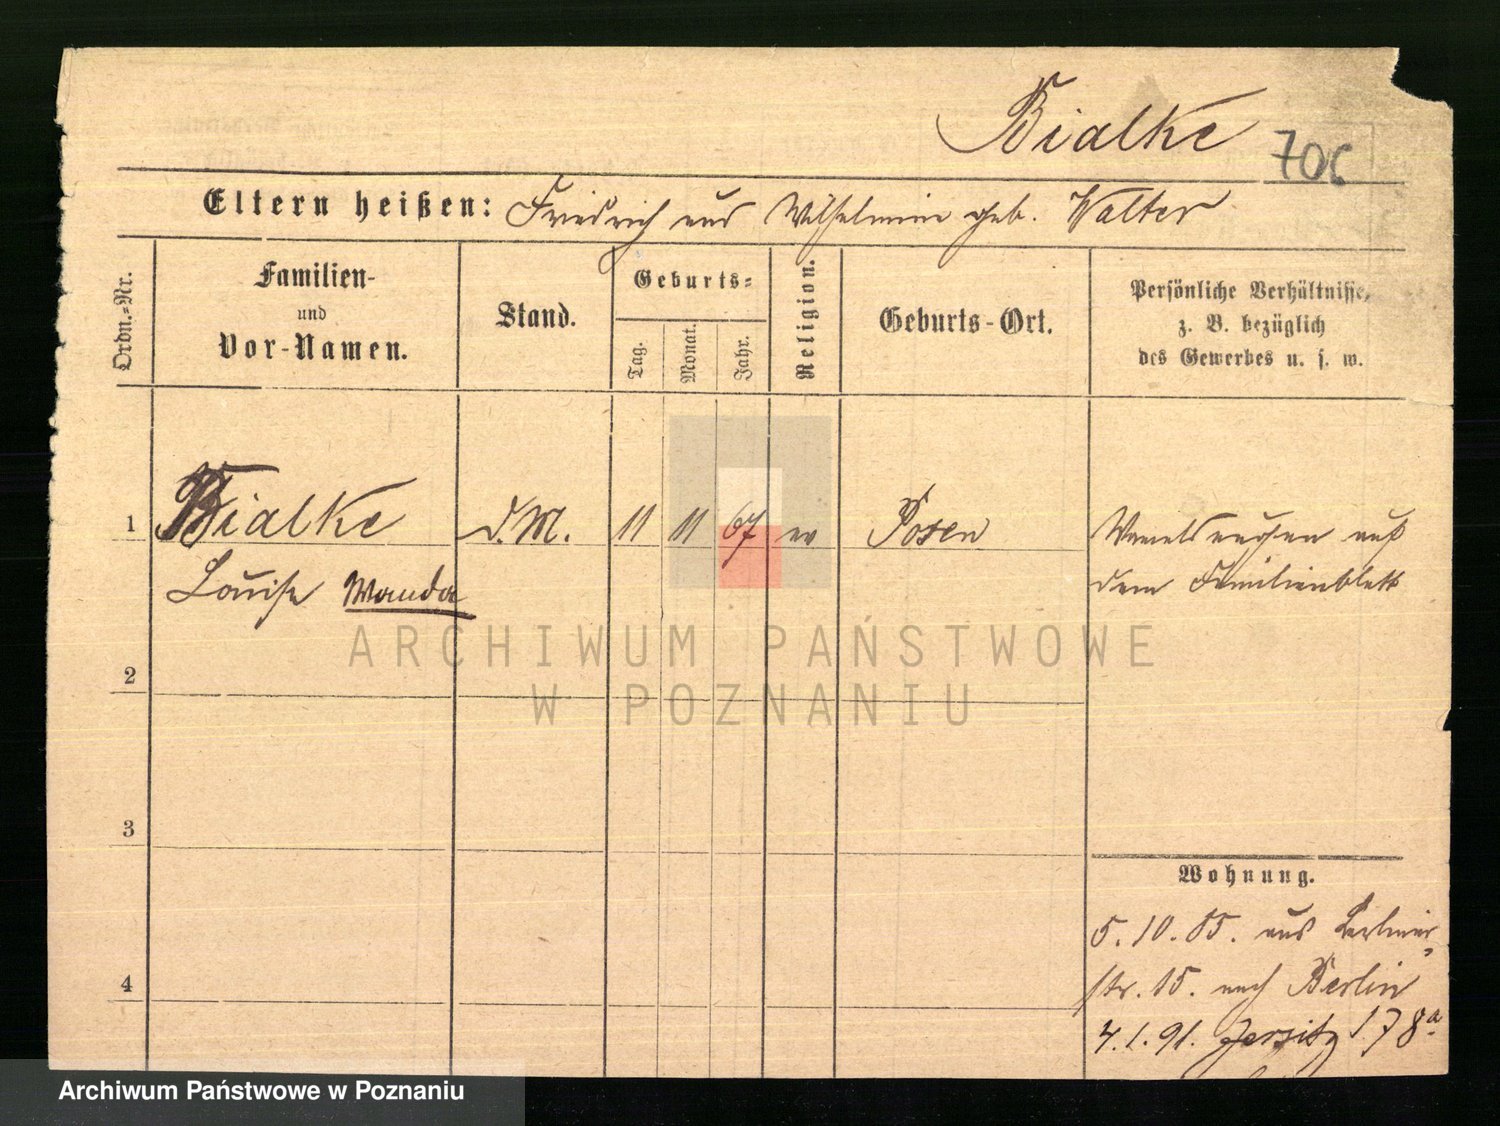 Bialke 706
Eltern heißen: Friedrich und Wilhelmine geb. Walter
Ordn.-Nr.
Familien-
und
Vor-Namen.
Stand.
Geburts=
Tag.
Monat.
Jahr.
Religion.
Geburts-Ort.
Persönliche Verhältnisse,
z. B. bezüglich
des Gewerbes u. s. w.
1 Bialke d. M. 11 11 67 ev Posen
Louise Wanda
auf
dem Familienblatt
2
3
4
Wohnung.
5.10.85. aus Berliner
str. 15. nach Berlin
4.1.91. Jersitz 178a
ARCHIWUM PAŃSTWOWE
W POZNANIU
Archiwum Państwowe w Poznaniu